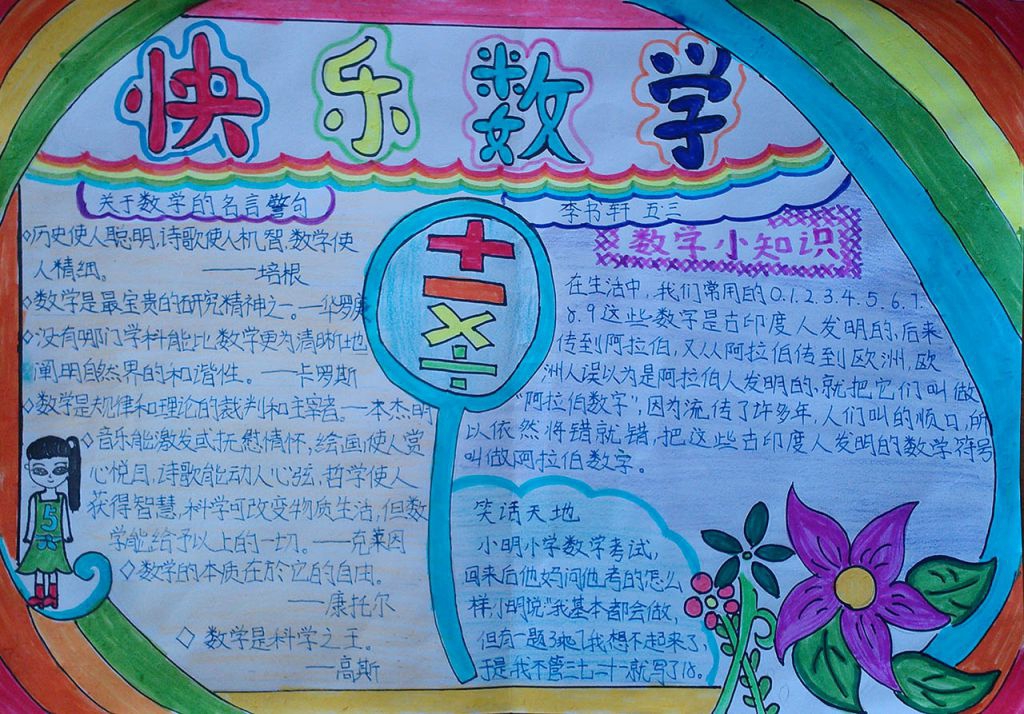 快乐数学
关于数学的名言警句
◇历史使人聪明,诗歌使人机智,数学使
人精细。 ——培根
◇数学是最宝贵的研究精神之一。—华罗庚
◇没有哪门学科能比数学更为清晰地
阐明自然界的和谐性。—卡罗斯
◇数学是规律和理论的裁判和主宰者。—本杰明
◇音乐能激发或抚慰情怀,绘画使人赏
心悦目,诗歌能动人心弦,哲学使人
获得智慧,科学可改变物质生活,但数
学能给予以上的一切。—克莱因
◇数学的本质在於它的自由。
——康托尔
◇ 数学是科学之王。
—高斯
+
−
×
÷
5
李书轩 五·三
数学小知识
在生活中,我们常用的0.1.2.3.4.5.6.7.
8.9这些数字是古印度人发明的,后来
传到阿拉伯,又从阿拉伯传到欧洲,欧
洲人误以为是阿拉伯人发明的,就把它们叫做
“阿拉伯数字”,因为流传了许多年,人们叫的顺口,所
以依然将错就错,把这些古印度人发明的数学符号
叫做阿拉伯数字。
笑话天地
小明小学数学考试,
回来后他妈问他考的怎么
样,小明说:“我基本都会做,
但有一题3乘7我想不起来了,
于是我不管三七二十一就写了18。